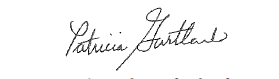 Patricia Gartland